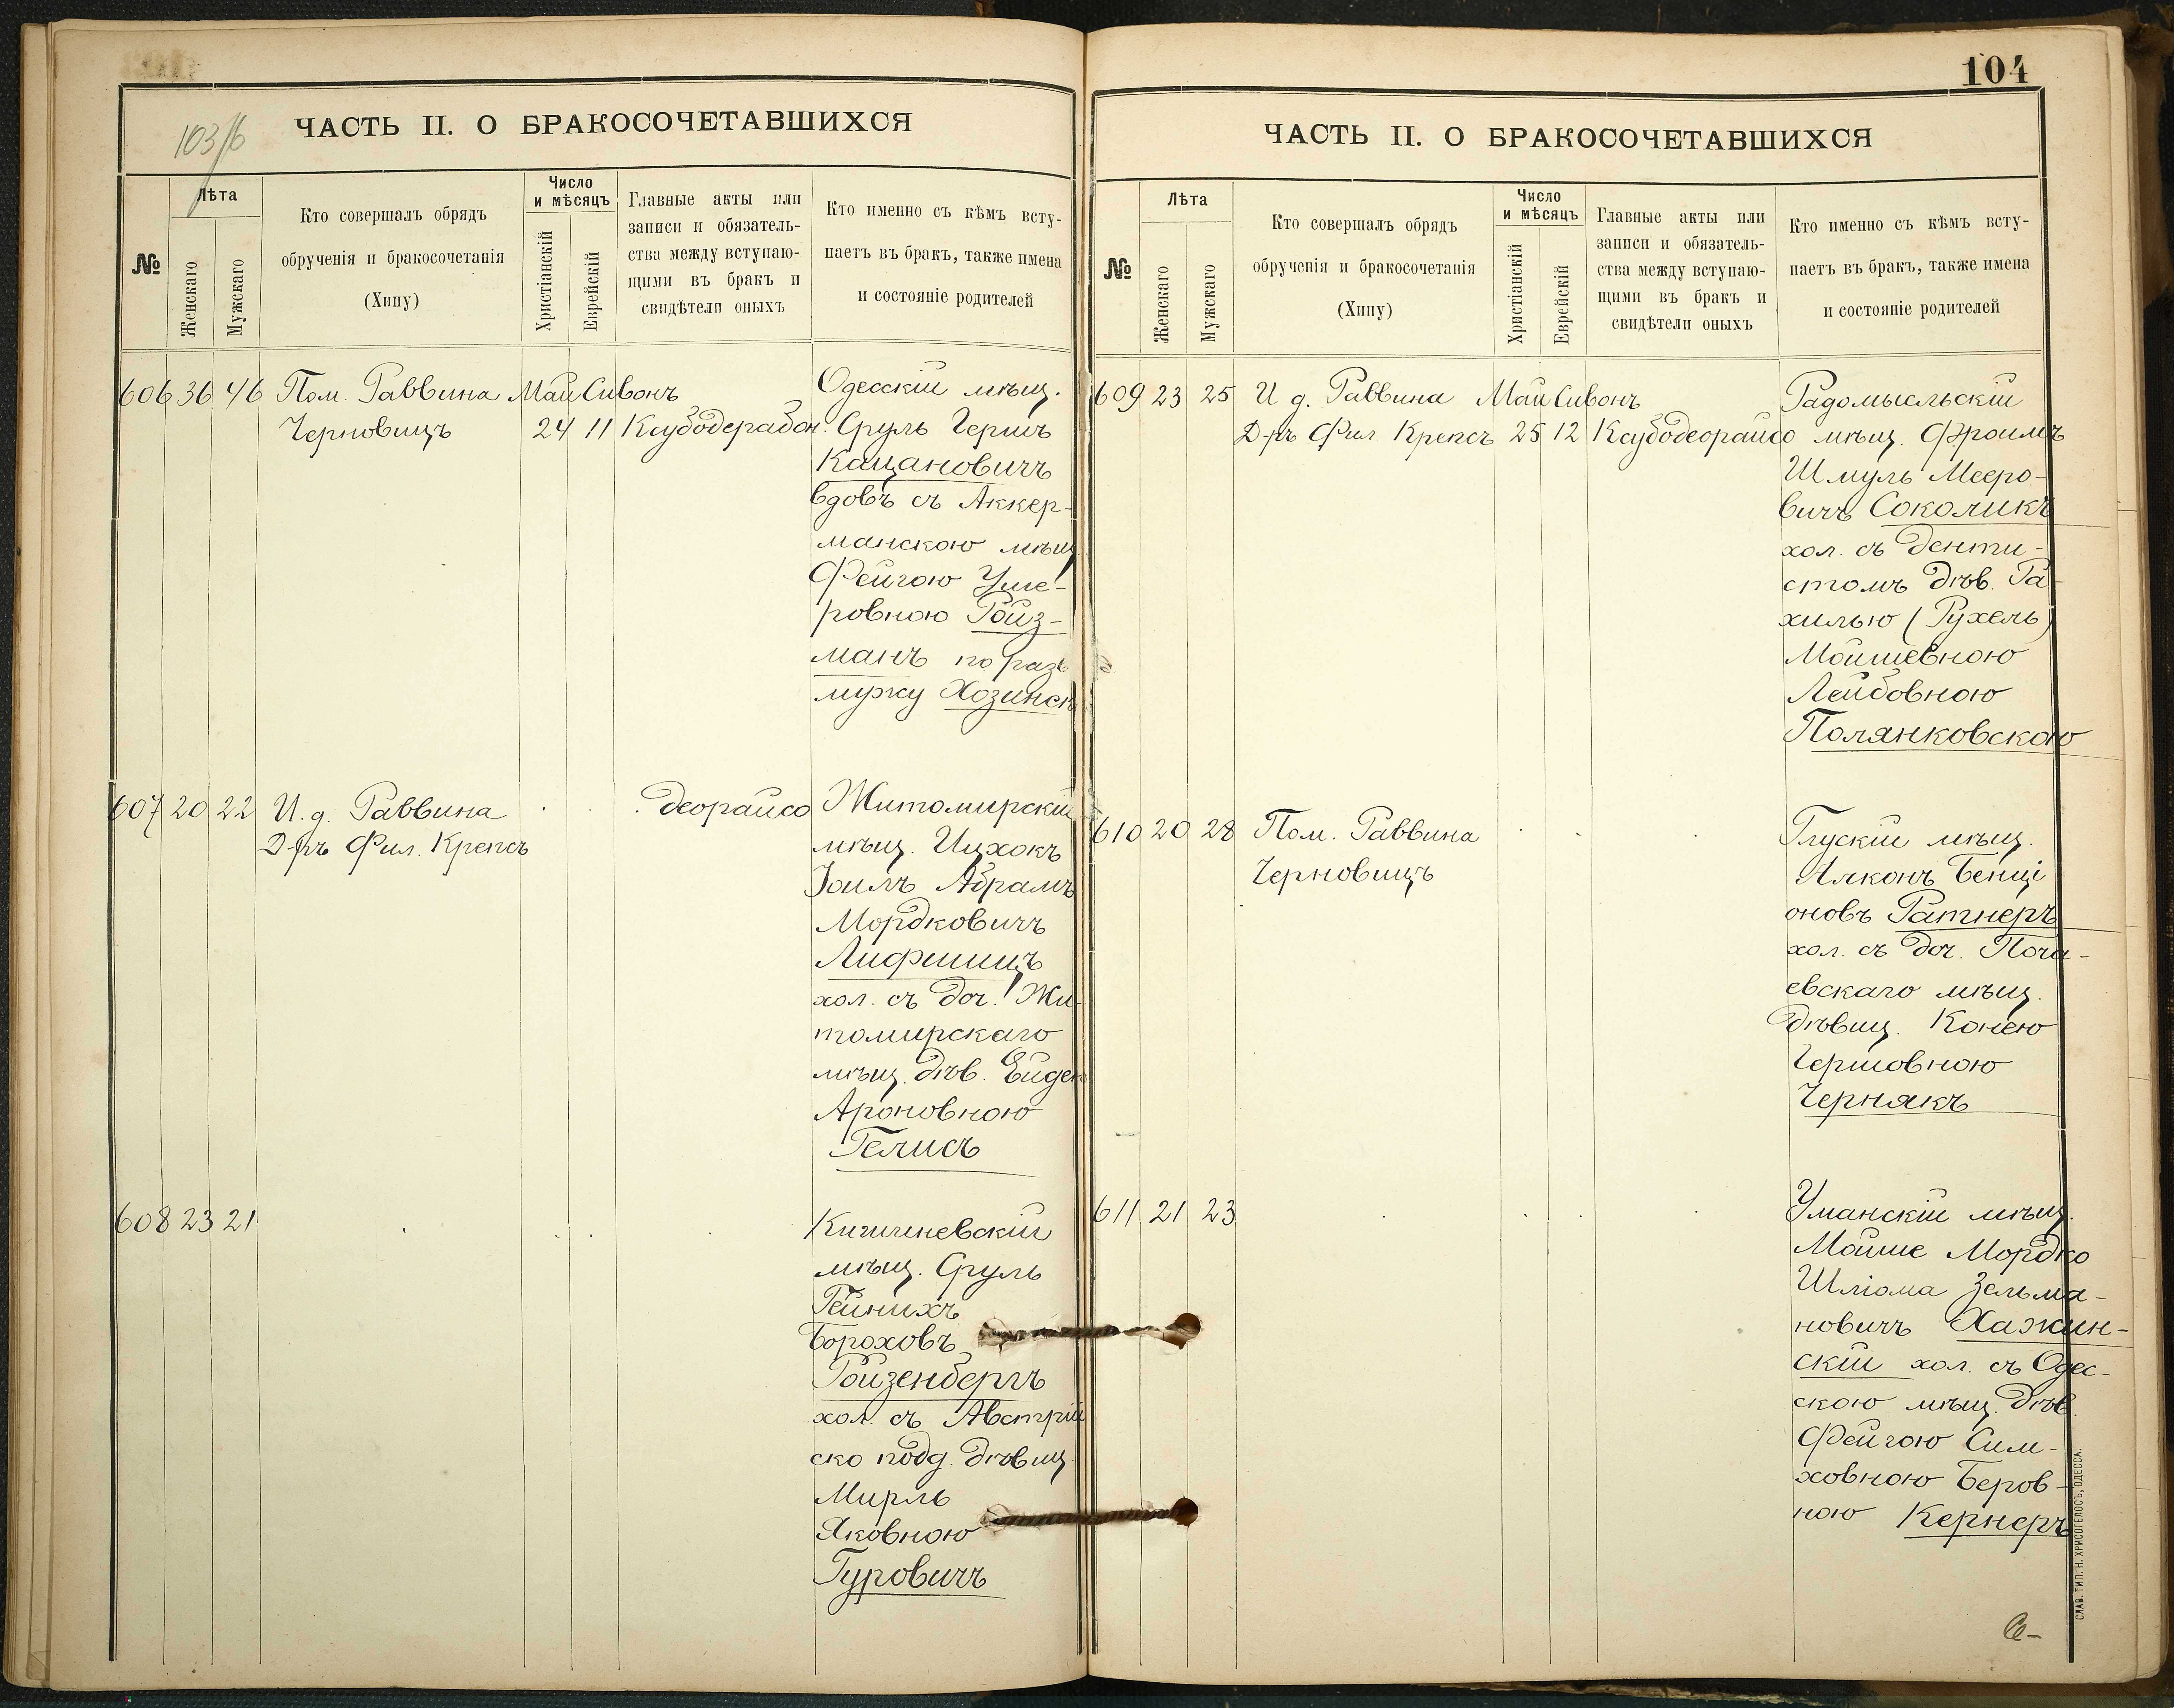 103/б
ЧАСТЬ II. О БРАКОСОЧЕТАВШИХСЯ
№
Лѣта
Женскаго
Мужскаго
Кто совершалъ обрядъ
обрученія и бракосочетанія
(Хипу)
Число
и мѣсяцъ
Христіанскій
Еврейскій
Главные акты или
записи и обязатель-
ства между вступаю-
щими въ бракъ и
свидѣтели оныхъ
Кто именно съ кѣмъ всту-
паетъ въ бракъ, также имена
и состояніе родителей
606 36 46 Пом. Раввина Май Сивонъ Одесскій мѣщ.
Черновицъ 24 11 Ксубодерабон. Сруль Гершъ
Кацановичъ
вдовъ съ Аккер-
манскою мѣщ
Фейгою Уше-
ровною Ройз-
манъ по разв
мужу Хозинск
607 20 22 И. д. Раввина деорайсо Житомирскій
Д-ръ Фил. Крепсъ мѣщ. Ицхокъ
Іоилъ Абрамъ
Мордковичъ
Лифшицъ
хол. съ доч. Жи-
томирскаго
мѣщ. дѣв. Ейдею
Ароновною
Гелисъ
608 23 21 Кишиневскій
мѣщ. Сруль
Гейнихъ
Бороховъ
Ройзенбергъ
хол. съ Австрій
ско подд. дѣвиц
Мирль
Яковною
Гуровичъ
104
ЧАСТЬ II. О БРАКОСОЧЕТАВШИХСЯ
№
Лѣта
Женскаго
Мужскаго
Кто совершалъ обрядъ
обрученія и бракосочетанія
(Хипу)
Число
и мѣсяцъ
Христіанскій
Еврейскій
Главные акты или
записи и обязатель-
ства между вступаю-
щими въ бракъ и
свидѣтели оныхъ
Кто именно съ кѣмъ всту-
паетъ въ бракъ, также имена
и состояніе родителей
609 23 25 И д. Раввина Май Сивонъ Радомысльскій
Д-ръ Фил. Крепсъ 25 12 Ксубодеорайсо мѣщ. Фроимъ
Шмуль Мееро-
вичъ Соколикъ
хол. съ денти-
стомъ дѣв. Ра-
хилью (Рухель)
Мойшевною
Лейбовною
Полянковскою
610 20 28 Пом. Раввина Глускій мѣщ.
Черновицъ Алконъ Бенці
оновъ Ратнеръ
хол. съ доч. Поча-
евскаго мѣщ.
дѣвиц. Конею
Гершовною
Чернякъ
611 21 23 Уманскій мѣщ.
Мойше Мордко
Шліома Зельма-
новичъ Хажин-
скій хол. съ Одес-
скою мѣщ. дѣв.
Фейгою Сим-
ховною Беров-
ною Кернеръ
СЛАВ. ТИП. Н. ХРИСОГЕЛОСЪ, ОДЕССА.